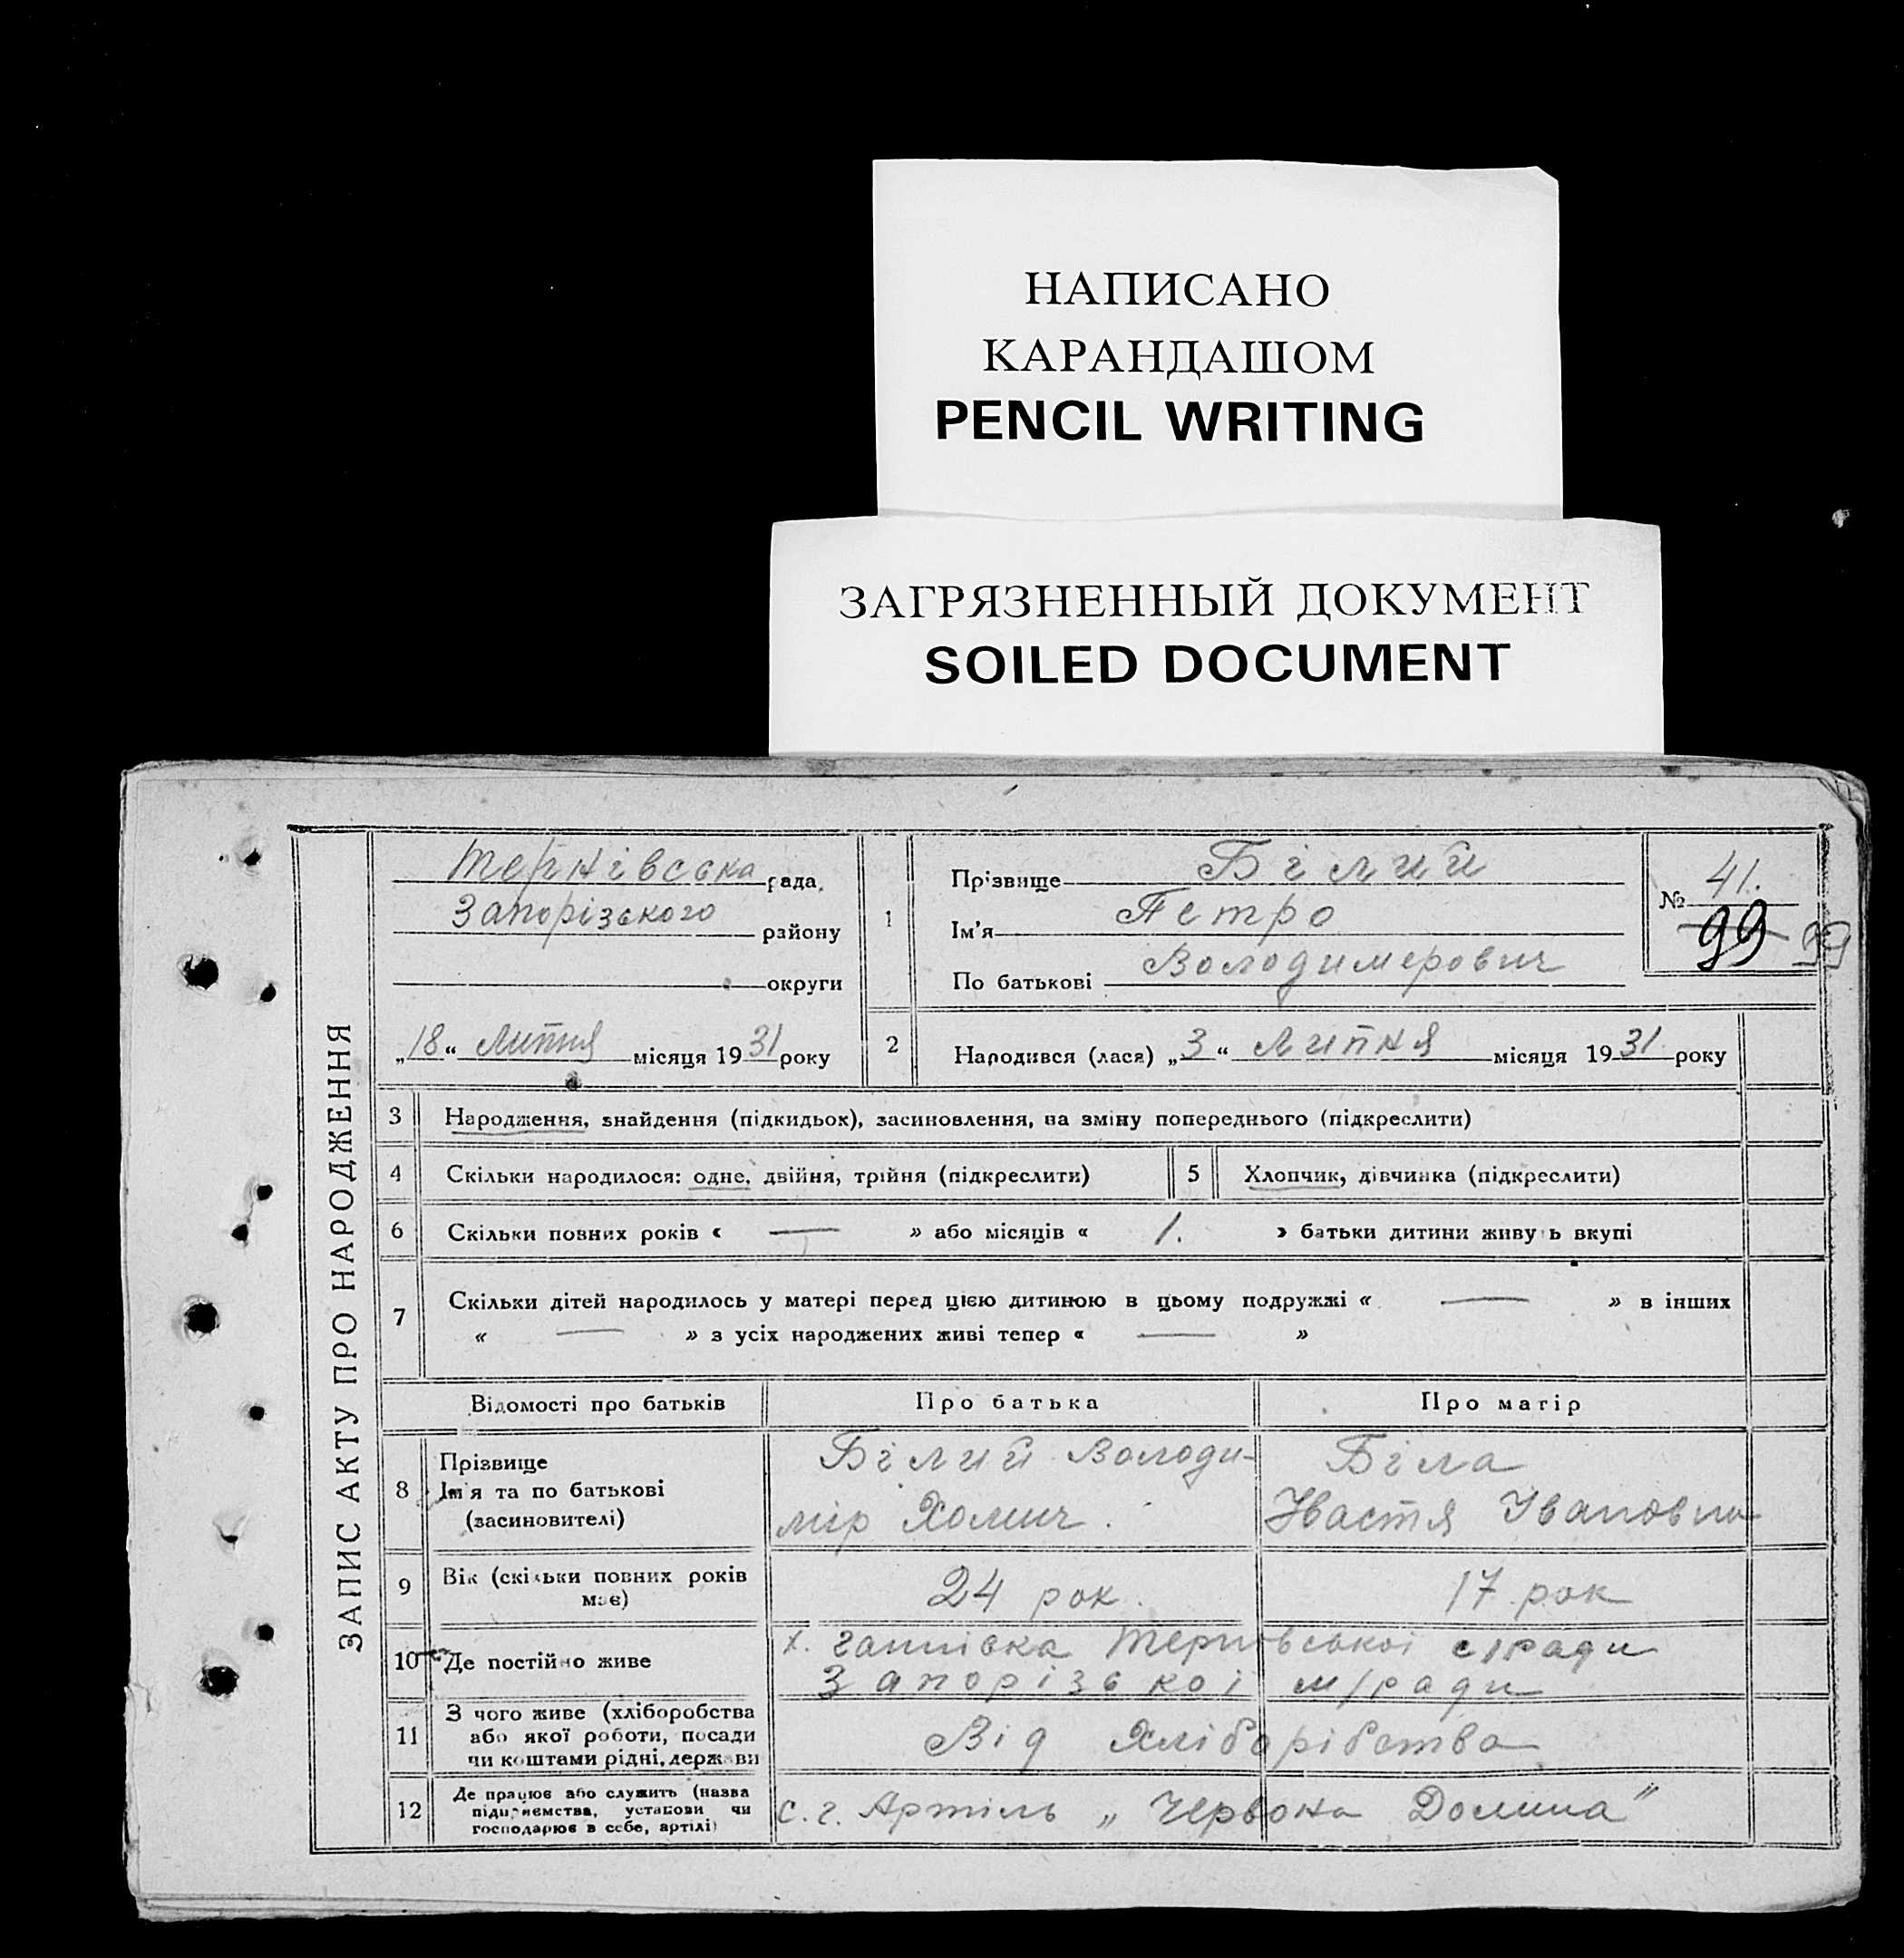 НАПИСАНО
КАРАНДАШОМ
PENCIL WRITING
ЗАГРЯЗНЕННЫЙ ДОКУМЕНТ
SOILED DOCUMENT
ЗАПИС АКТУ ПРО НАРОДЖЕННЯ
Тернівська рада,
Запорізького району
округи
„18“ Липня місяця 1931 року
1
Прізвище Білий
Ім'я Петро
По батькові Володимерович
№ 41.
99
2 Народився (лася) „3“ Липня місяця 1931 року
3 Народження, знайдення (підкидьок), засиновлення, на зміну попереднього (підкреслити)
4 Скільки народилося: одне, двійня, трійня (підкреслити) 5 Хлопчик, дівчинка (підкреслити)
6 Скільки повних років « — » або місяців « 1. » батьки дитини живуть вкупі
7 Скільки дітей народилось у матері перед цією дитиною в цьому подружжі « — » в інших
« — » з усіх народжених живі тепер « — »
Відомості про батьків Про батька Про матір
8 Прізвище
Ім'я та по батькові
(засиновителі)
Білий Володи-
мір Хомич.
Біла
Настя Івановна
9 Вік (скільки повних років
має)
24 рок. 17 рок
10 Де постійно живе
х. Ганнівка Терновської с/ради
Запорізької м/ради
11 З чого живе (хліборобства
або якої роботи, посади
чи коштами рідні, держави
Від Хліборібства
12 Де працює або служить (назва
підприємства, установи чи
господарює в себе, артілі)
с.г. Артіль „Червона Долина"